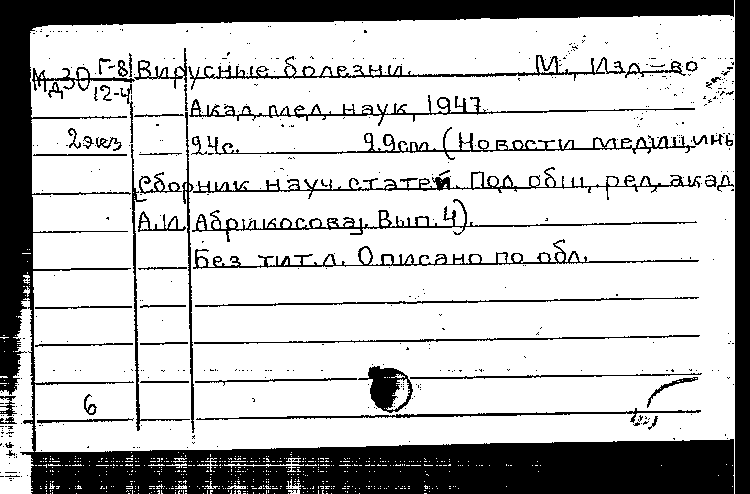 Мд30 Г-8/12-4 Вирусные болезни. М., Изд-во
Акад. мед. наук, 1947.
2экз 94с. 29см. (Новости медицины
Сборник науч. статей. Под общ. ред. акад.
А.И. Абрикосова. Вып. 4).
Без тит. л. Описано по обл.
6